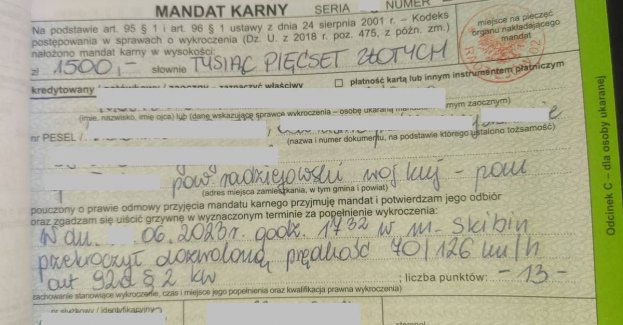 MANDAT KARNY SERIA NUMER
Na podstawie art. 95 § 1 i art. 96 § 1 ustawy z dnia 24 sierpnia 2001 r. – Kodeks
postępowania w sprawach o wykroczenia (Dz. U. z 2018 r. poz. 475, z późn. zm.)
nałożono mandat karny w wysokości:
miejsce na pieczęć
organu nakładającego
mandat
zł 1500,- słownie TYSIĄC PIĘĆSET ZŁOTYCH
kredytowany właściwy płatność kartą lub innym instrumentem płatniczym
(imię, nazwisko, imię ojca) lub (dane wskazujące sprawcę wykroczenia – osobę ukaraną zaocznym)
nr PESEL /
(nazwa i numer dokumentu, na podstawie którego ustalono tożsamość)
pow radziejowski woj kuj - pom
(adres miejsca zamieszkania, w tym gmina i powiat)
pouczony o prawie odmowy przyjęcia mandatu karnego przyjmuję mandat i potwierdzam jego odbiór
oraz zgadzam się uiścić grzywnę w wyznaczonym terminie za popełnienie wykroczenia:
W dn. .06.2023r. godz. 1732 w m. Skibin
przekroczył dozwoloną prędkość 70/126 km/h
art 92a § 2 kw ; liczba punktów: -13-
zachowanie stanowiące wykroczenie, czas i miejsce jego popełnienia oraz kwalifikacja prawna wykroczenia)
Odcinek C – dla osoby ukaranej